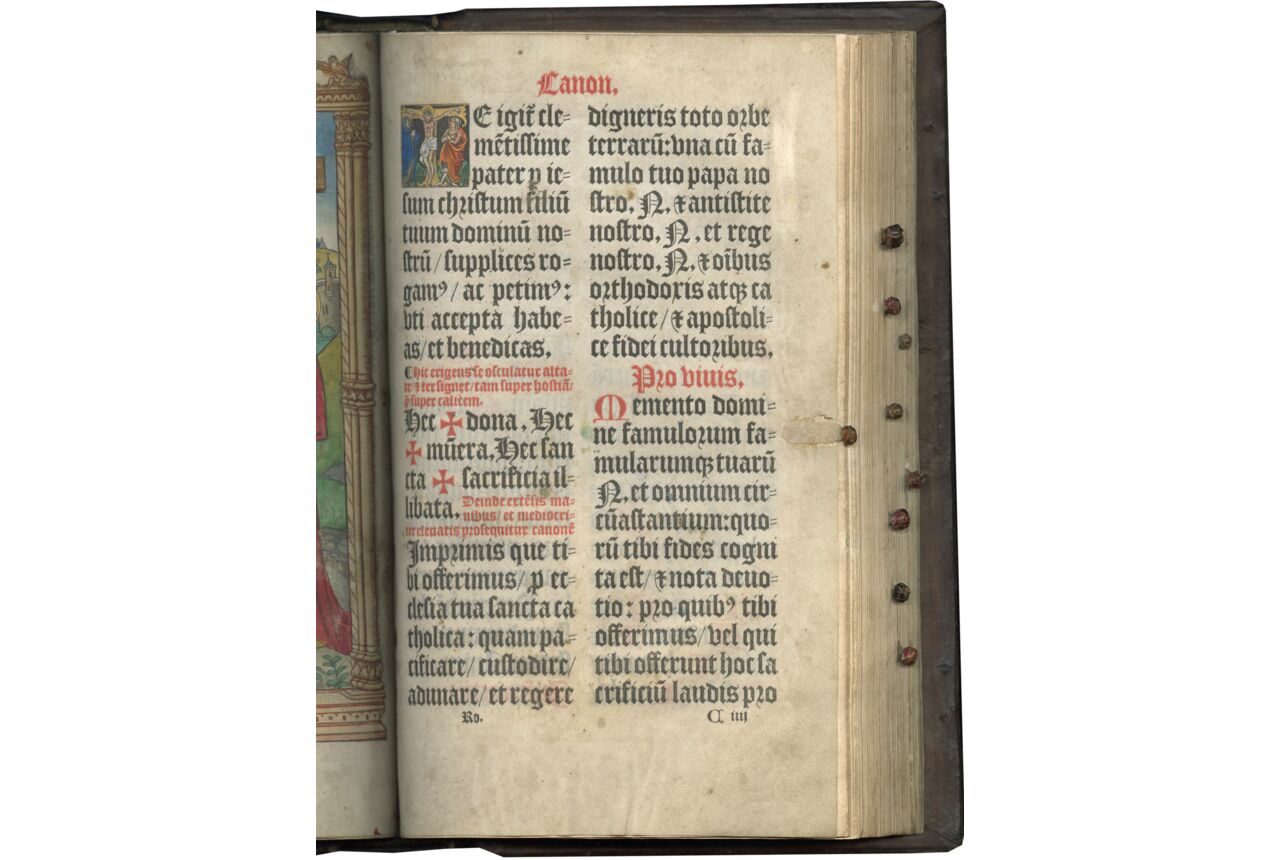 Canon.
E igit̃ cle=
mẽtissime
pater p ie=
sum christum filiũ
tuum dominũ no=
strũ / supplices ro=
gamꝰ / ac petimꝰ:
vti accepta habe=
as / et benedicas.
Chic erigens se osculatur alta=
ter signet / tam super hostiã /
super calicem.
Hec ✠ dona. Hec
✠ mũera. Hec san
cta ✠ sacrificia il=
libata. Deinde extẽsis ma=
nibus / et mediocri=
ter eleuatis prosequitur canonẽ
Imprimis que ti=
bi offerimus / ꝑ ec=
clesia tua sancta ca
tholica: quam pa=
cificare / custodire /
adunare / et regere
Ro.
digneris toto orbe
terrarũ: vna cũ fa=
mulo tuo papa no
stro. N. ⁊ antistite
nostro. N. et rege
nostro. N. ⁊ oĩbus
orthodoxis atqꝫ ca
tholice / ⁊ apostoli=
ce fidei cultoribus.
Pro viuis.
Memento domi=
ne famulorum fa=
mularumqꝫ tuarũ
N. et omnium cir=
cũastantium: quo=
rũ tibi fides cogni
ta est / ⁊ nota deuo=
tio: pro quibꝰ tibi
offerimus / vel qui
tibi offerunt hoc sa
crificiũ laudis pro
C iiij